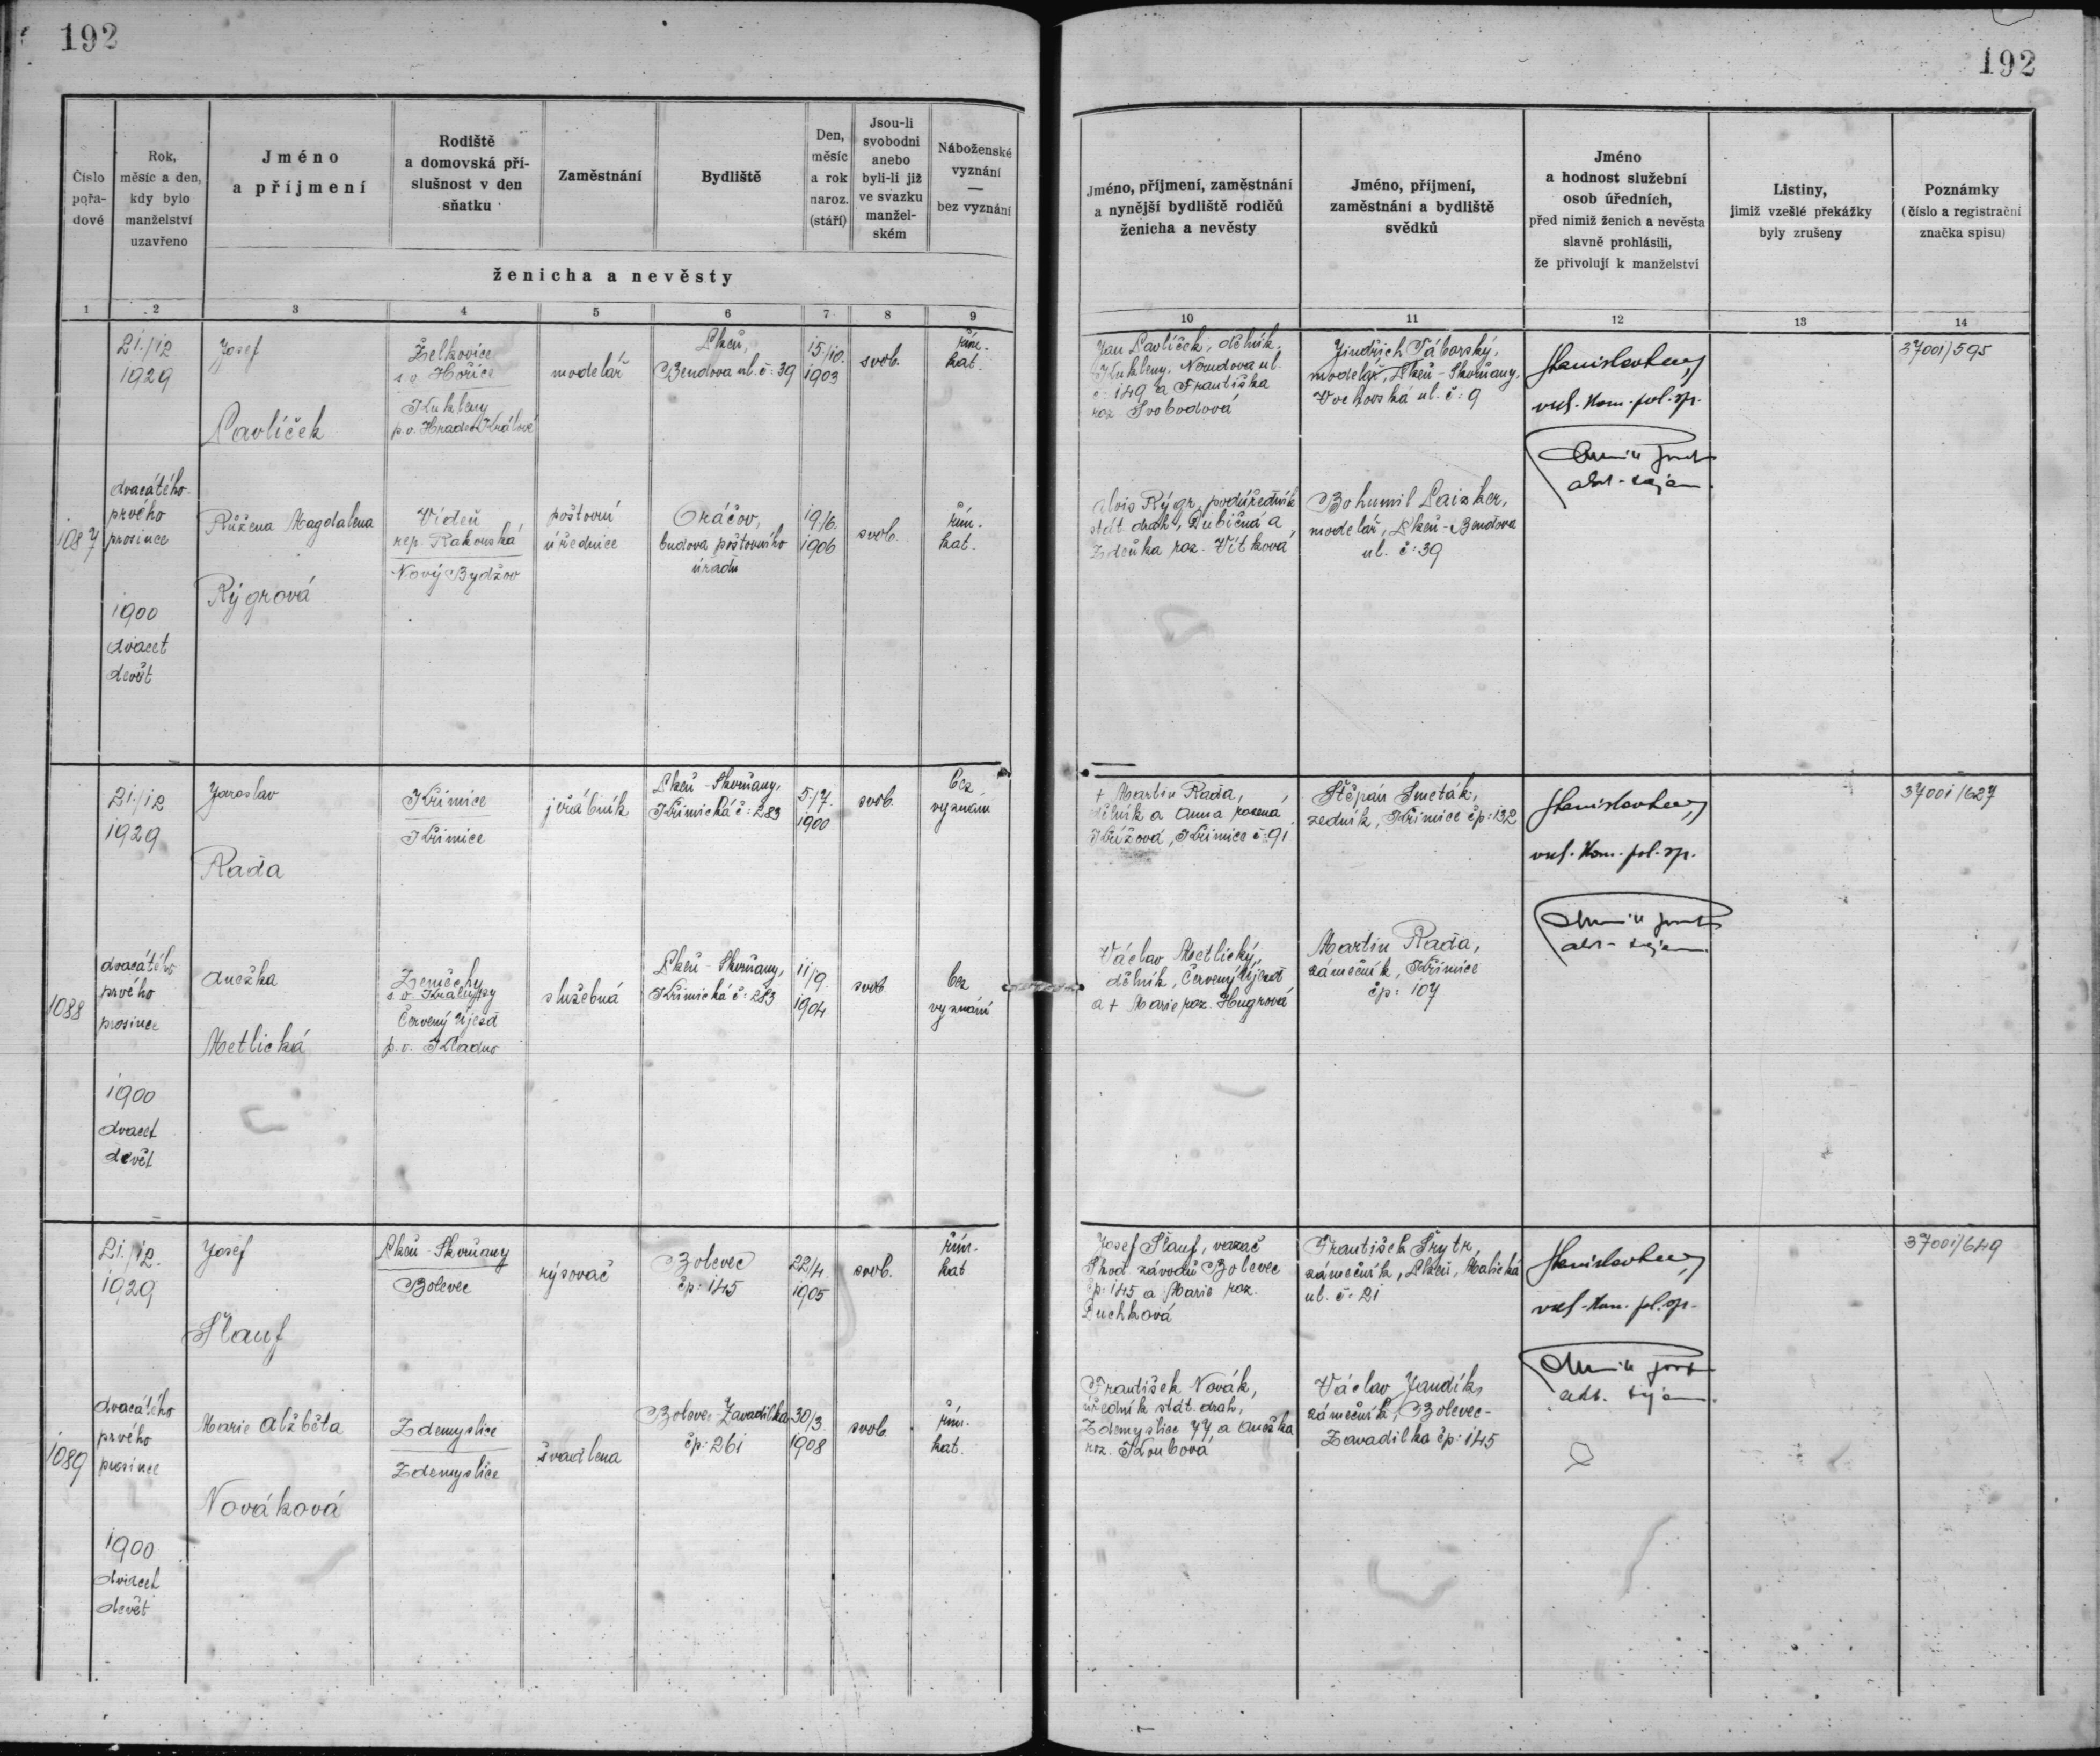 192
192
Číslo
pořa-
dové
Rok,
měsíc a den,
kdy bylo
manželství
uzavřeno
Jméno
a příjmení
Rodiště
a domovská pří-
slušnost v den
sňatku
Zaměstnání
Bydliště
Den,
měsíc
a rok
naroz.
(stáří)
Jsou-li
svobodni
anebo
byli-li již
ve svazku
manžel-
ském
Náboženské
vyznání
—
bez vyznání
ženicha a nevěsty
Jméno, příjmení, zaměstnání
a nynější bydliště rodičů
ženicha a nevěsty
Jméno, příjmení,
zaměstnání a bydliště
svědků
Jméno
a hodnost služební
osob úředních,
před nimiž ženich a nevěsta
slavně prohlásili,
že přivolují k manželství
Listiny,
jimiž vzešlé překážky
byly zrušeny
Poznámky
(číslo a registrační
značka spisu)
1 2 3 4 5 6 7 8 9 10 11 12 13 14
1087
21./12.
1929
dvacátého
prvého
prosince
1900
dvacet
devět
Josef
Pavlíček
Želkovice
s. o. Hořice
Kukleny
p. o. Hradec Králové
modelář
Plzeň,
Bendova ul. č: 39
15./10.
1903
svob.
řím.
kat.
Jan Pavlíček, dělník,
Kukleny, Nerudova ul.
č: 149 a Františka
roz. Svobodová
Jindřich Táborský,
modelář, Plzeň-Skvrňany,
Vrchovská ul. č: 9
vrch. kom. pol. sp.
37001/595
Růžena Magdalena
Rýgrová
Vídeň
rep. Rakouská
Nový Bydžov
poštovní
úřednice
Oráčov,
budova poštovního
úřadu
19/6.
1906
svob.
řím.
kat.
Alois Rýgr, podúředník
stát. drah, Dubičná a
Zdeňka roz. Vítková
Bohumil Laizker,
modelář, Plzeň-Bendova
ul. č: 39
1088
21./12.
1929
dvacátého
prvého
prosince
1900
dvacet
devět
Jaroslav
Raďa
Křimice
Křimice
jeřábník
Plzeň-Skvrňany,
Křimická č: 283
5/7.
1900
svob.
bez
vyznání
+ Martin Raďa,
dělník a Anna rozená
Křížová, Křimice č: 91
Štěpán Smeták,
zedník, Křimice čp: 132
vrch. kom. pol. sp.
37001/627
Anežka
Metlická
Zeměchy
s. o. Kralupy
Červený Újezd
p. o. Kladno
služebná
Plzeň-Skvrňany,
Křimická č: 283
11/9.
1904
svob.
bez
vyznání
Václav Metlický,
dělník, Červený Újezd
a + Marie roz. Hugrová
Martin Raďa,
zámečník, Křimice
čp: 107
1089
21./12.
1929
dvacátého
prvého
prosince
1900
dvacet
devět
Josef
Šlauf
Plzeň-Skvrňany
Bolevec
rýsovač
Bolevec
čp: 145
22/4.
1905
svob.
řím.
kat
Josef Šlauf, vazač
Škod. závodů Bolevec
čp: 145 a Marie roz.
Duchková
František Šrytr,
zámečník, Plzeň, Malická
ul. č: 21
vrch. kom. pol. sp.
37001/649
Marie Alžběta
Nováková
Zdemyslice
Zdemyslice
švadlena
Bolevec-Zavadilka
čp: 261
30/3.
1908
svob.
řím.
kat.
František Novák,
úředník stát. drah,
Zdemyslice 77, a Anežka
roz. Koubová
Václav Jandík,
zámečník, Bolevec-
Zavadilka čp: 145